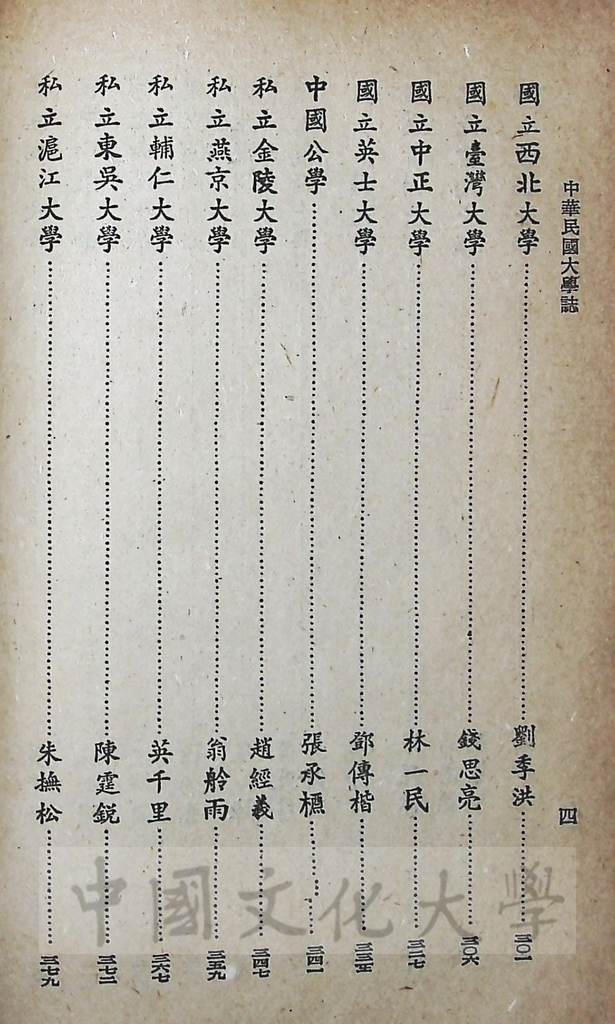 中華民國大學誌
四
國立西北大學 劉季洪 三〇一
國立臺灣大學 錢思亮 三〇六
國立中正大學 林一民 三二七
國立英士大學 鄧傳楷 三三五
中國公學 張承槱 三四一
私立金陵大學 趙經羲 三四七
私立燕京大學 翁舲雨 三五九
私立輔仁大學 英千里 三六七
私立東吳大學 陳霆銳 三七二
私立滬江大學 朱撫松 三七九
中國文化大學